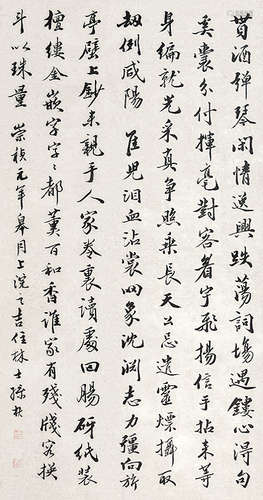 荀酒弹琴闲情逸兴跌荡词场遇镂心得句
奚囊分付挥毫对客看字飞扬信手拈来等
身编就光采真争照乘长天公忌遣灵㷸摄取
劫例咸阳 隹儿泪血沾裳网象沈渊志力彊向旅
亭壁上钞来亲手人家卷里读处回肠研纸装
檀缕金嵌字字字都薰百和香谁家有残牋容换
斗以珠量 崇祯元年皋月上浣之吉住林士